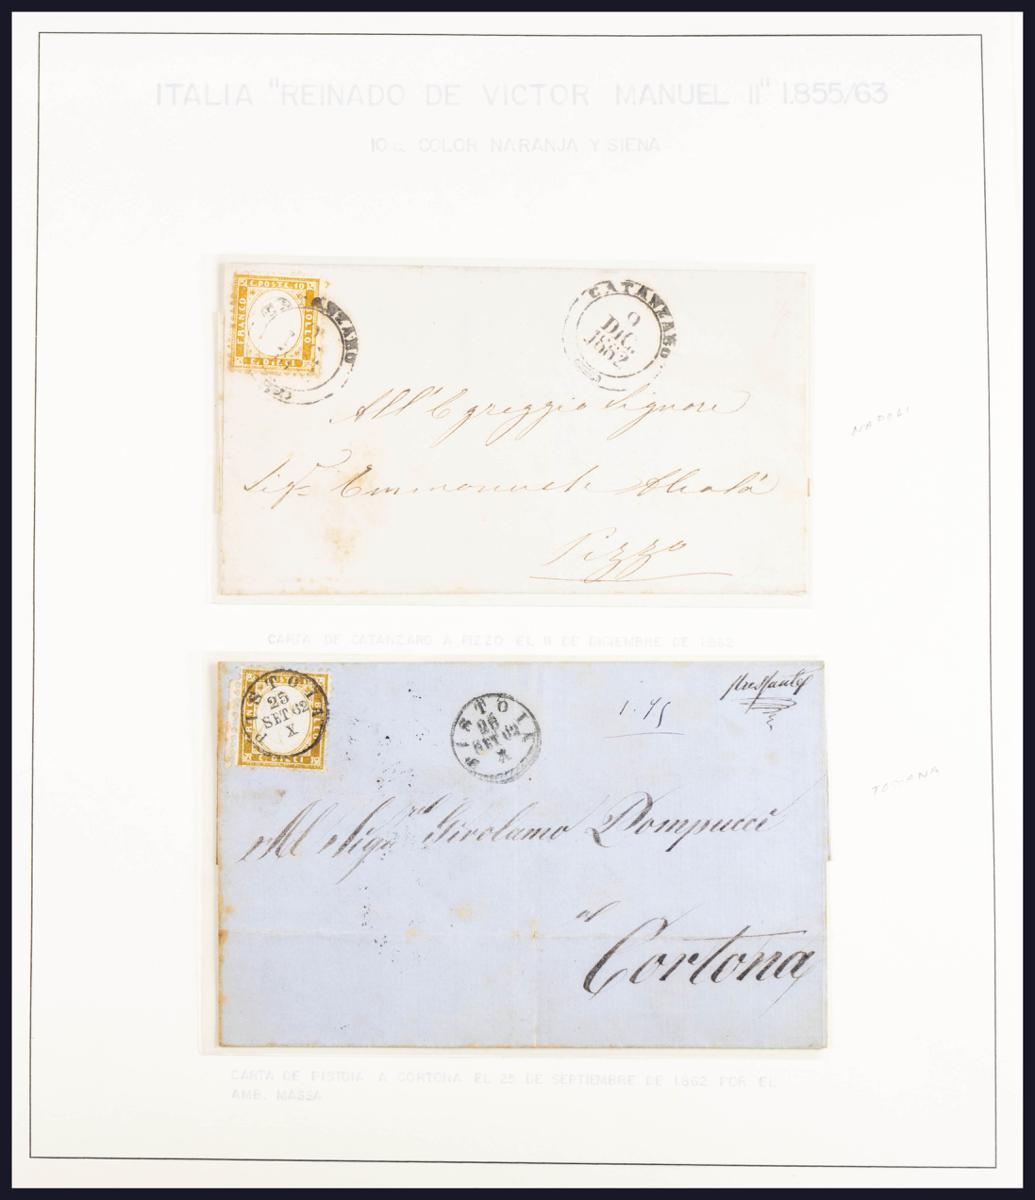 ITALIA "REINADO DE VICTOR MANUEL II" 1.855/63
10 c. COLOR NARANJA Y SIENA
C. POSTE 10
FRANCO
BOLLO
C. DIECI
CATANZARO
9
DIC.
1862
All'Egreggio Signore
Sigr. Emmanuele Alcalá
Pizzo
NAPOLI
CARTA DE CATANZARO A PIZZO EL 9 DE DICIEMBRE DE 1.862
PISTOIA
25
SET 62
X
PISTOIA
25
SET 62
X
Al Sigr. Girolamo Pompucci
Cortona
TOSCANA
CARTA DE PISTOIA A CORTONA EL 25 DE SEPTIEMBRE DE 1.862 POR EL
AMB. MASSA